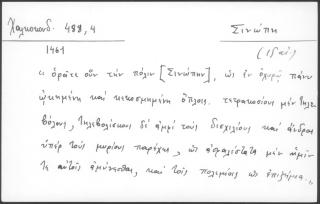 Χαλκοκονδ. 488,4 Σινώπη
1461 (15 αἰ)
"ὁρᾶτε οὖν τὴν πόλιν [Σινώπην], ὡς ἐν ὀχυρῷ πάνυ
ᾠκημένη καὶ κεκοσμημένη ὅπλοις. τετρακοσίους μὲν τηλε
βόλους, τηλεβολίσκους δὲ ἀμφὶ τοὺς δισχιλίους καὶ ἄνδρας
ὑπὲρ τοὺς μυρίους παρέχει, ὡς ἀσφαλέστατα μὲν ἡμῖν
τε αὐτοῖς ἀμύνεσθαι, καὶ τοῖς πολεμίοις ὡς ἐπιζήμια."